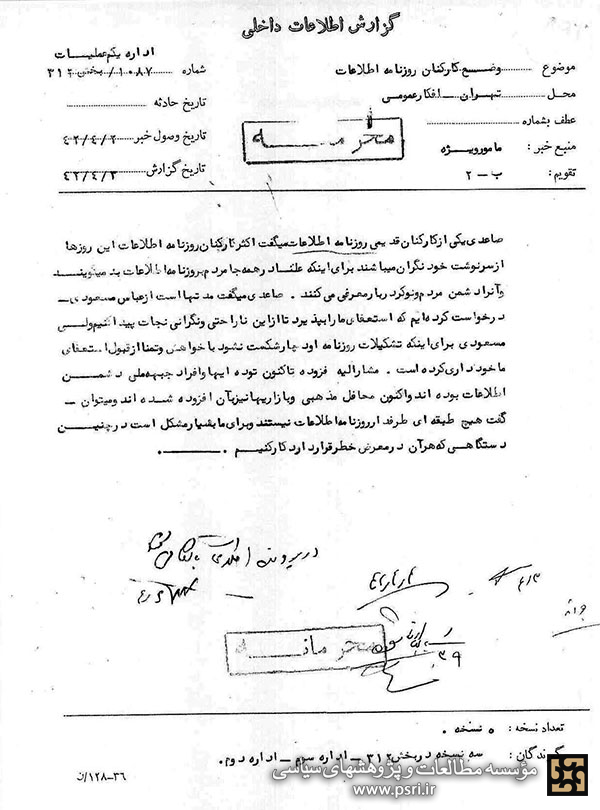 گزارش اطلاعات داخلی
اداره یکم عملیات
موضوع : وضع کارکنان روزنامه اطلاعات
شماره ۱۰۸۷/بخش ۳۱۲
محل : تهران - افکار عمومی
تاریخ حادثه :
عطف بشماره :
محرمانه
تاریخ وصول خبر ۴۲/۴/۲
منبع خبر : مامور ویژه
تاریخ گزارش ۴۲/۴/۳
تقویم : ب - ۲
صاعدی یکی از کارکنان قدیمی روزنامه اطلاعات میگفت اکثر کارکنان روزنامه اطلاعات این روزها
از سرنوشت خود نگران میباشند برای اینکه در همه جا مردم بروزنامه اطلاعات بد میگویند
وآنرا دشمن مردم ونوکر دربار معرفی می کنند . صاعدی میگفت مدتها است از عباس مسعودی -
درخواست کرده ایم که استعفای ما را بپذیرد تا از این ناراحتی ونگرانی نجات پیدا کنیم ولی
مسعودی برای اینکه تشکیلات روزنامه او دچار شکست نشود با خواهش وتمنا از قبول استعفای
ما خودداری کرده است . مشارالیه فزوده تاکنون توده ایها وافراد جبهه ملی دشمن
اطلاعات بوده اند واکنون محافل مذهبی وبازاریها نیز بآن افزوده شده اند ومیتوان -
گفت هیچ طبقه ای طرفدار روزنامه اطلاعات نیستند وبرای ما بسیار مشکل است در چنین
دستگاهی که هر آن در معرض خطر قرار دارد کار کنیم .
در پرونده
۴/۳
محرمانه
۳۹
تعداد نسخه : ۵ نسخه .
گیرندگان : سه نسخه در بخش ۳۱۲ - اداره سوم - اداره دوم .
۳۶-۱۲۸/ن
مؤسسه مطالعات و پژوهشهای سیاسی
www.psri.ir